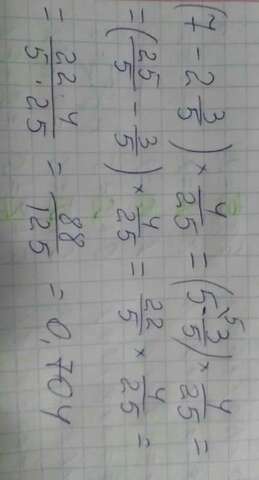 (7 - 2 3/5) × 4/25 = (5 5 - 3/5) × 4/25 =
= (25/5 - 3/5) × 4/25 = 22/5 × 4/25 =
= 22·4/5·25 = 88/125 = 0,704